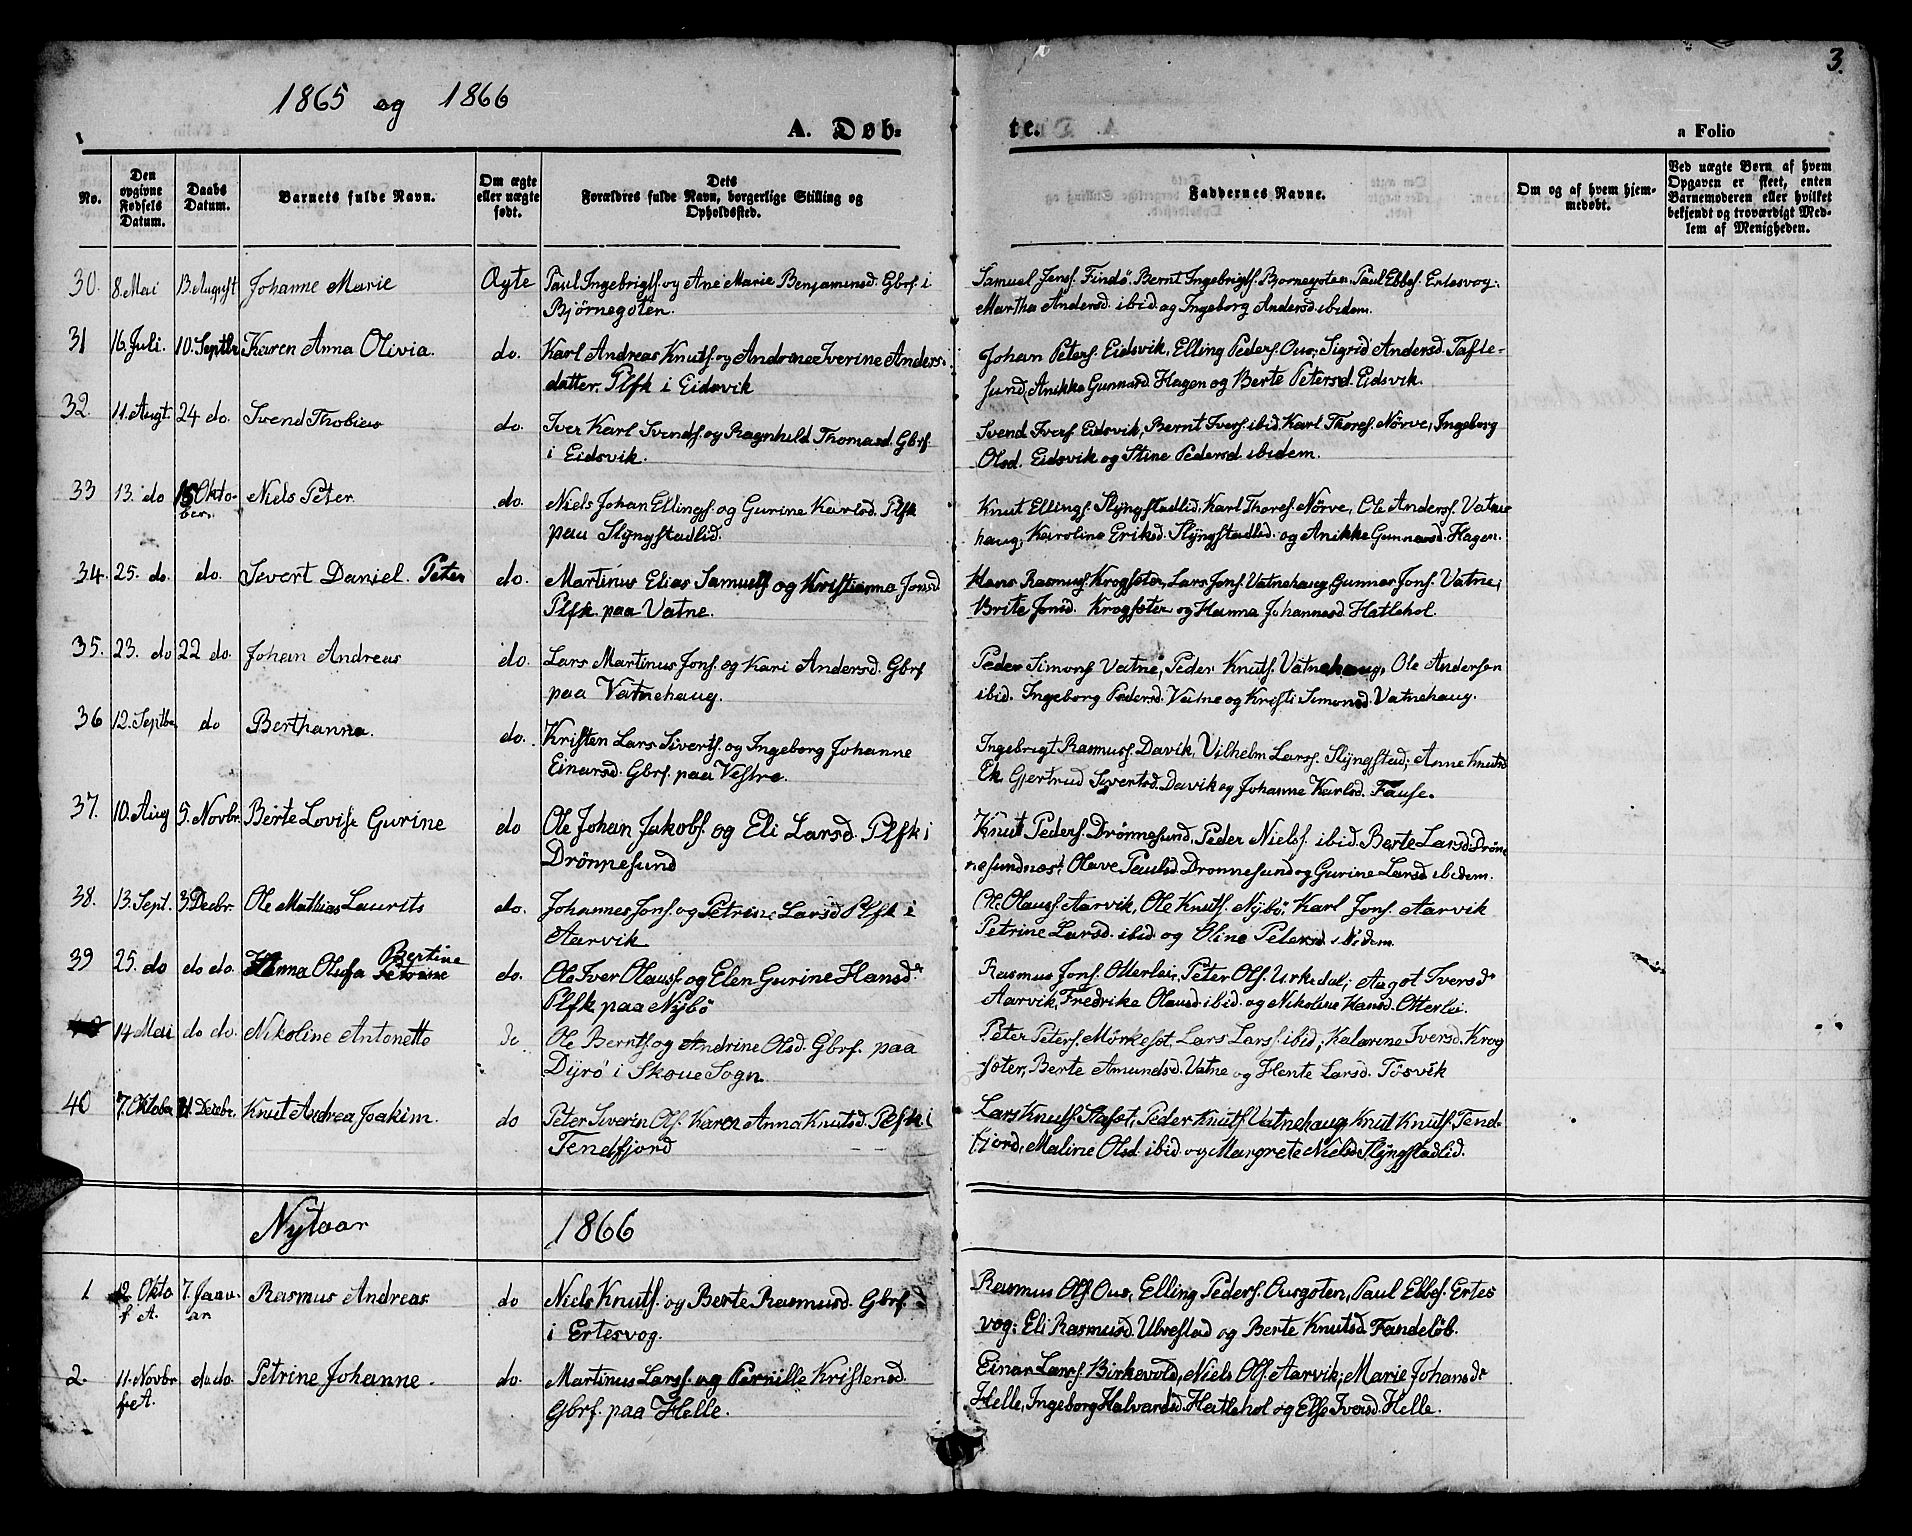 3.
1865 og 1866
A. Døb-
te.
a Folio
No.
Den opgivne Fødsels Datum.
Daabs Datum.
Barnets fulde Navn.
Om ægte eller uægte født.
Dets Forældres fulde Navn, borgerlige Stilling og Opholdssted.
Faddernes Navne.
Om og af hvem hjemmedøbt.
Ved uægte Børn af hvem Opgaven er skeet, enten Barnemoderen eller hvilket bekjendt og troværdigt Medlem af Menigheden.
30. 8 Mai 13. August Johanne Marie Ægte Paul Ingebrigts. og Ane Marie Benjaminsd. Gbrf. i
Björnegöten.
Samuel Jens. Findö. Bernt Ingebrigts. Bjornegoten. Paul Ebbes. Ertesvog;
Martha Andersd. ibid. og Ingeborg Andersd. ibidem.
31 16. Juli. 10. Septbr Karen Anna Olivia. do. Karl Andreas Knuts. og Andrine Iverine Anders-
datter. Plfk i Eidsvik
Johan Peters. Eidsvik, Elling Peders. Ous, Sigrid Andersd. Tafte-
sund, Anikke Gunnarsd. Hagen og Berte Petersd. Eidsvik.
32. 11. Augt. 24 do. Svend Thobias do. Iver Karl Svends. og Ragnhild Thomasd. Gbrf.
i Eidsvik.
Svend Ivers. Eidsvik, Bernt Ivers. ibid. Karl Thores. Nörve, Ingeborg
Olsd. Eidsvik og Stine Pedersd ibidem.
33 13. do 15 Okto-
ber. Niels Peter do. Niels Johan Ellings. og Gurine Karlsd. Plfk
paa Slÿngstadlid.
Knut Ellings. Slÿngstadlid, Karl Thores. Nörve, Ole Anderss. Vatne
haug, Karoline Eriksd. Slÿngstadlid. og Anikke Gunnarsd. Hagen.
34. 25. do. do. Severt Daniel. Peter do. Martinus Elias Samuels. og Kristianna Jonsd
Plfk. paa Vatne.
Hans Rasmus. Krogsæter, Lars Jons. Vatnehaug, Gunnar Jons. Vatne,
Brite Jonsd. Krogsæter og Hanna Johannesd. Hatlehol.
35. 23. do 22 do. Johan Andreas do. Lars Martinus Jons. og Kari Andersd. Gbrf
paa Vatnehaug.
Peder Simons Vatne, Peder Knuts. Vatnehaug, Ole Andersen
ibid. Ingeborg Pedersd. Vatne og Kristi Simonsd. Vatnehaug.
36 12. Septbr do Berthanna. do. Kristen Lars Siverts. og Ingeborg Johanne
Einarsd. Gbrf. paa Vestre.
Ingebrigt Rasmuss. Davik, Vilhelm Larss. Slÿngstad; Anne Knutsd
Ek Gjertrud Sivertsd. Davik og Johanne Karlsd. Fause.
37. 10. Aug 5. Novbr. Berte Lovise Gurine do Ole Johan Jakobs. og Eli Larsd. Plfk i
Drönnesund
Knut Peders. Drönnesund, Peder Niels. ibid. Berte Larsd. Dröne
nesundnæs, Olave Paulsd. Dronnesund og Gurine Larsd ibidem.
38. 13. Sept. 3. Decbr. Ole Mathias Laurits do. Johannes Jons. og Petrine Larsd Plfk i
Aarvik
Ole Olauss Aarvik, Ole Knuts. Nÿbö, Karl Jons. Aarvik
Petrine Larsd. ibid og Oline Petersd ibidem.
39 25. do do do. Hanna Olufa Bertine
Petrine do. Ole Iver Olaus. og Elen Gurine Hansd.
Plfk. paa Nÿbö
Rasmus Jons. Otterlei, Peter Ols. Urkedal; Aagot Iversd.
Aarvik, Fredrike Olausd. ibid. og Nikoline Hansd. Otterlei.
14 Mai do do. Nikoline Antonette do Ole Bernts. og Andrine Olsd. Gbrf. paa
Dÿrö i Skoue Sogn
Peter Peters. Mörkesæt, Lars Lars. ibid, Katarine Iversd. Krog
sæter, Berte Amundsd. Vatne og Hente Larsd. Tösvik
40 7. Oktober 31. Decbr. Knut Andrea Joakim. do Peter Siverin Ols. Karen Anna Knutsd. Plfk i
Tendfjord
Lars Knuts. Stasæt, Peder Knuts. Vatnehaug, Knut Knuts. Tend-
fjord, Maline Olsd. ibid. og Margrete Nielsd. Slÿngstadlid.
Nytaar 1866
1 12 Okto
f A. 7. Janu-
ar Rasmus Andreas do Niels Knuts. og Berte Rasmusd. Gbrf.
i Ertesvog.
Rasmus Ols. Ous, Elling Peders. Ousgoten, Paul Ebbes. Ertes
vog; Eli Rasmusd. Ulvestad og Berte Knutsd. Fandelöb.
2. 11. Novbr
f A. do do. Petrine Johanne. do. Martinus Lars. og Pernille Kristensd.
Gbrf. paa Helle.
Einar Lars. Birkevold, Niels Ols. Aarvik; Marie Johansd.
Helle, Ingeborg Halvardsd. Hatlehol og Else Iversd. Helle.